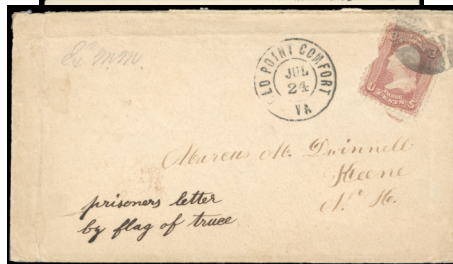 OLD POINT COMFORT
JUL
24
VA
Marcus M. Dwinnell
Keene
N. H.
prisoners letter
by flag of truce